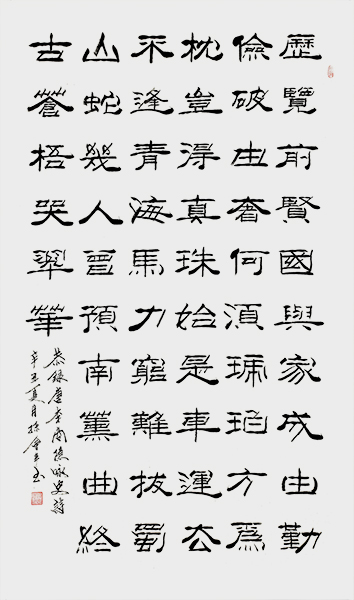 歷覽前賢國與家成由勤
儉破由奢何須琥珀方為
枕豈得真珠始是車運去
不逢青海馬力窮難拔蜀
山蛇幾人曾預南薰曲終
古蒼梧哭翠華
恭錄唐李商隱咏史詩
辛丑夏月孫